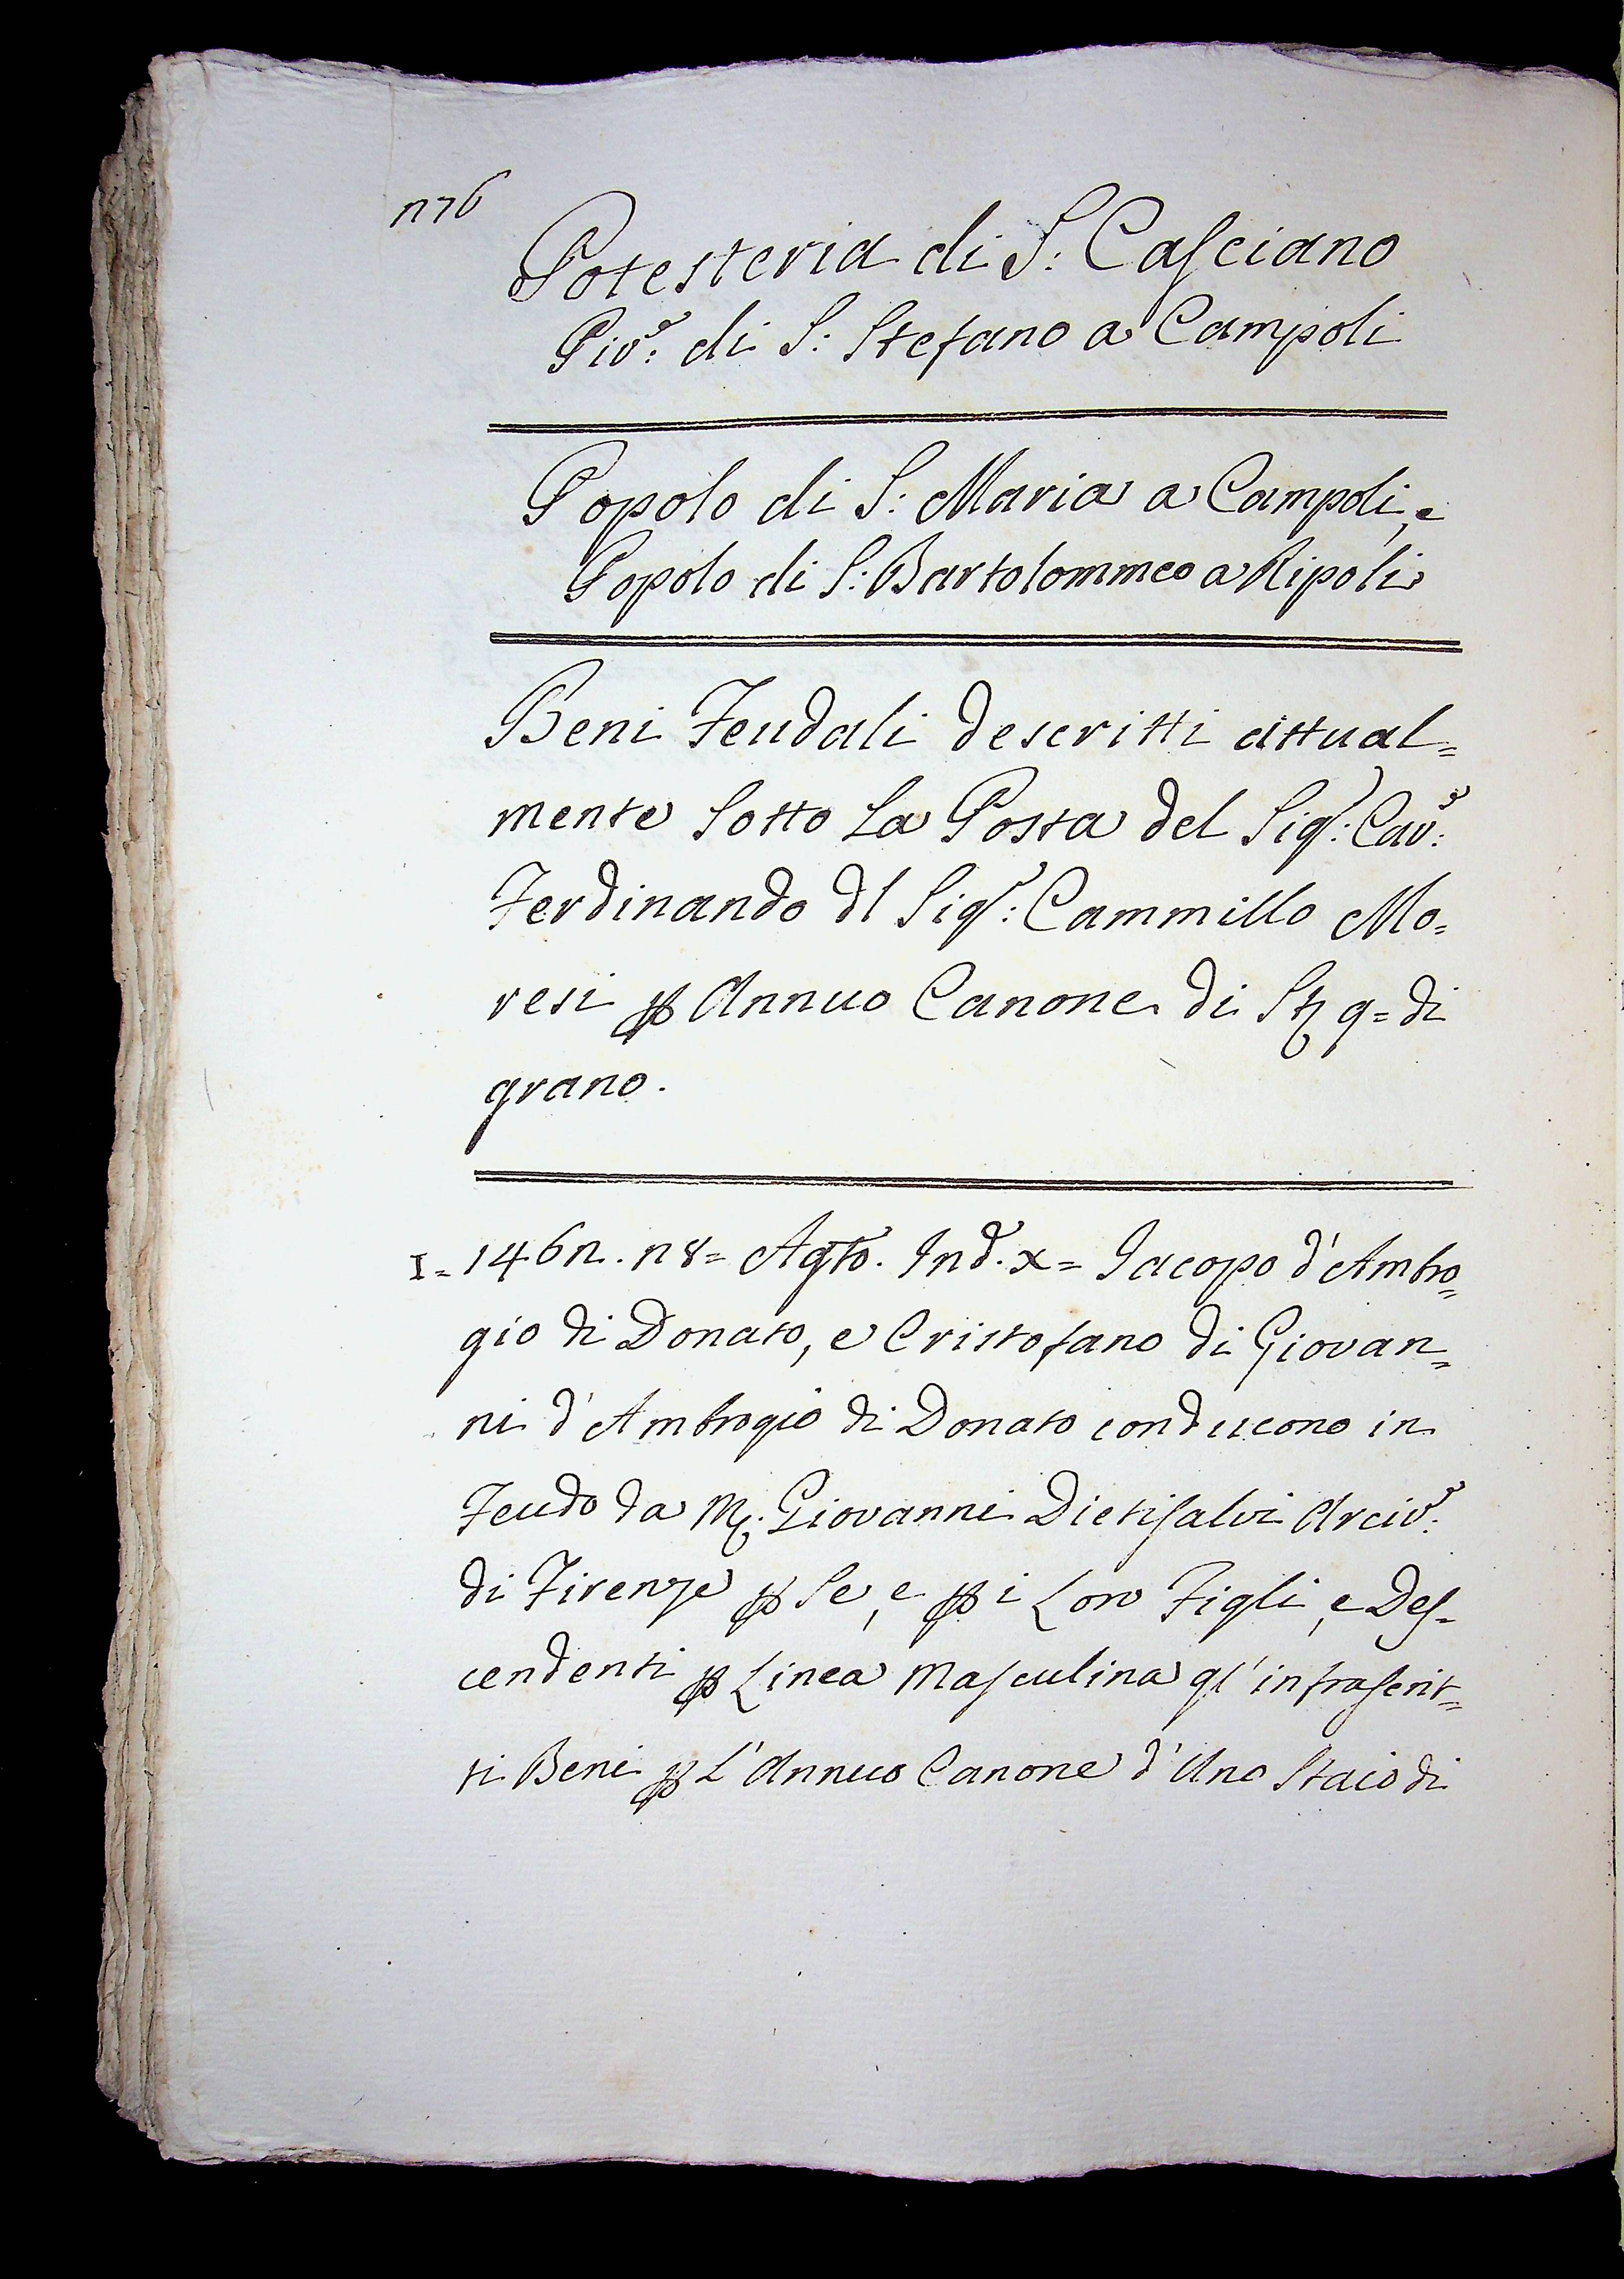 276
Potesteria di S: Casciano
Piv.e: di S: Stefano a Campoli
Popolo di S: Maria a Campoli, e
Popolo di S: Bartolommeo a Ripoli
Beni Feudali descritti attual=
mente Sotto La Posta del Sig.r: Cav.e:
Ferdinando dl Sig.r: Cammillo Mo=
resi p Annuo Canone di St 9= di
grano.
I= 1462. 28= Agto. Ind.e x= Jacopo d'Ambro=
gio di Donato, e Cristofano di Giovan=
ni d'Ambrogio di Donato conducono in
Feudo da M. Giovanni Dietisalvi Arciv.e:
di Firenze p Se, e p i Loro Figli, e Des=
cendenti p Linea Masculina gl'infrascrit=
ti Beni p L'Annuo Canone d'Uno Staio di